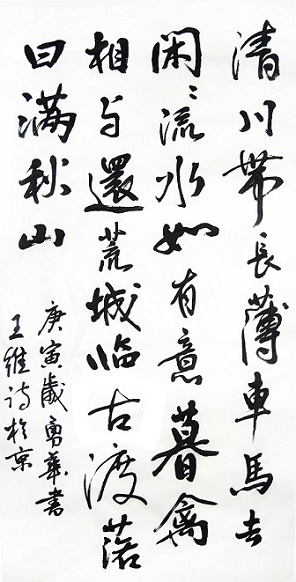 清川帶長薄車馬去
闲々流水如有意暮禽
相与還荒城临古渡落
日满秋山
庚寅歲勇華書
王維诗於京